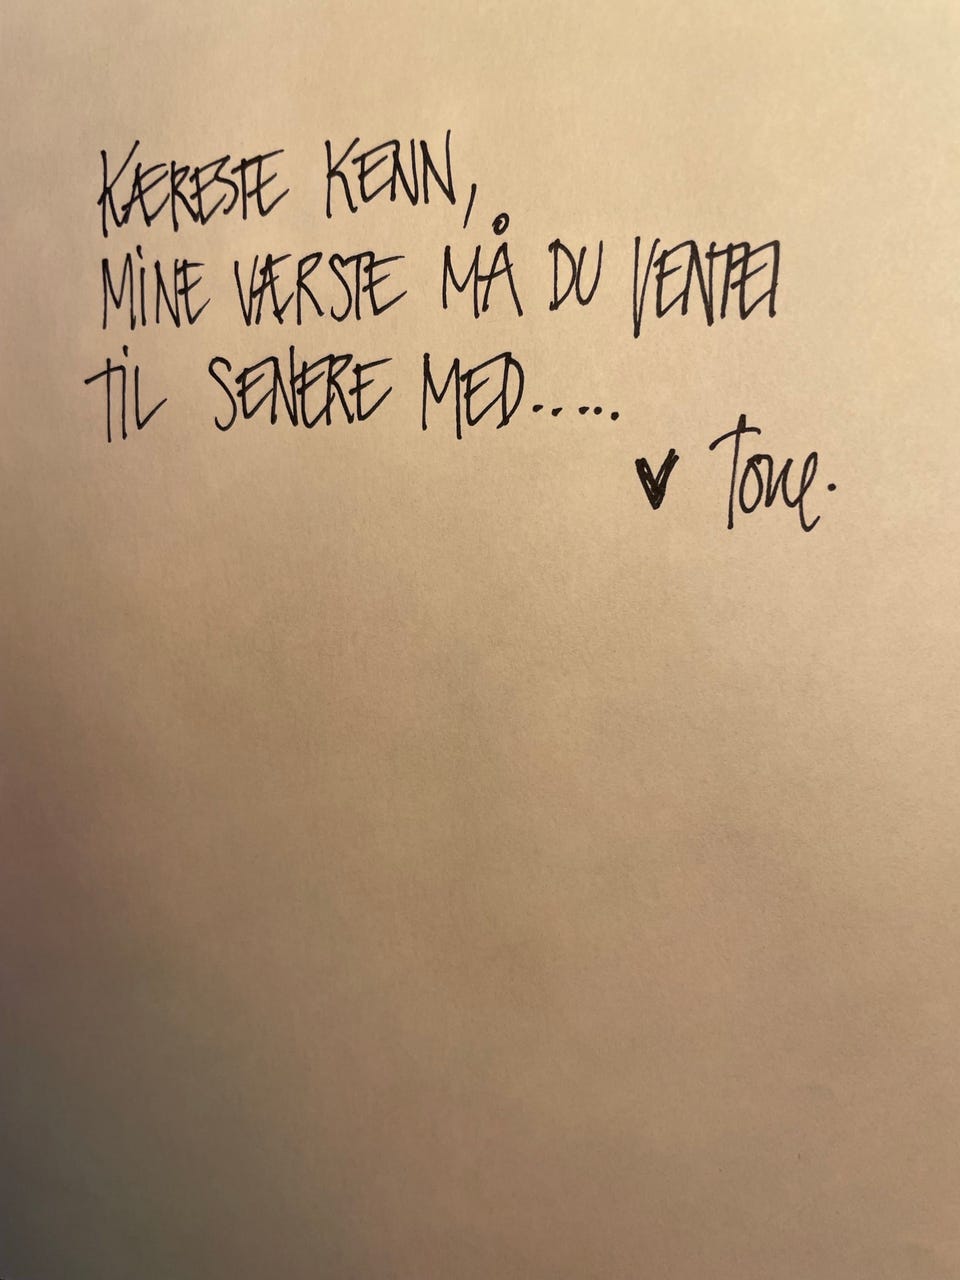 KÆRESTE KENN,
MINE VÆRSTE MÅ DU VENTE
TIL SENERE MED.....
♥ Tone.